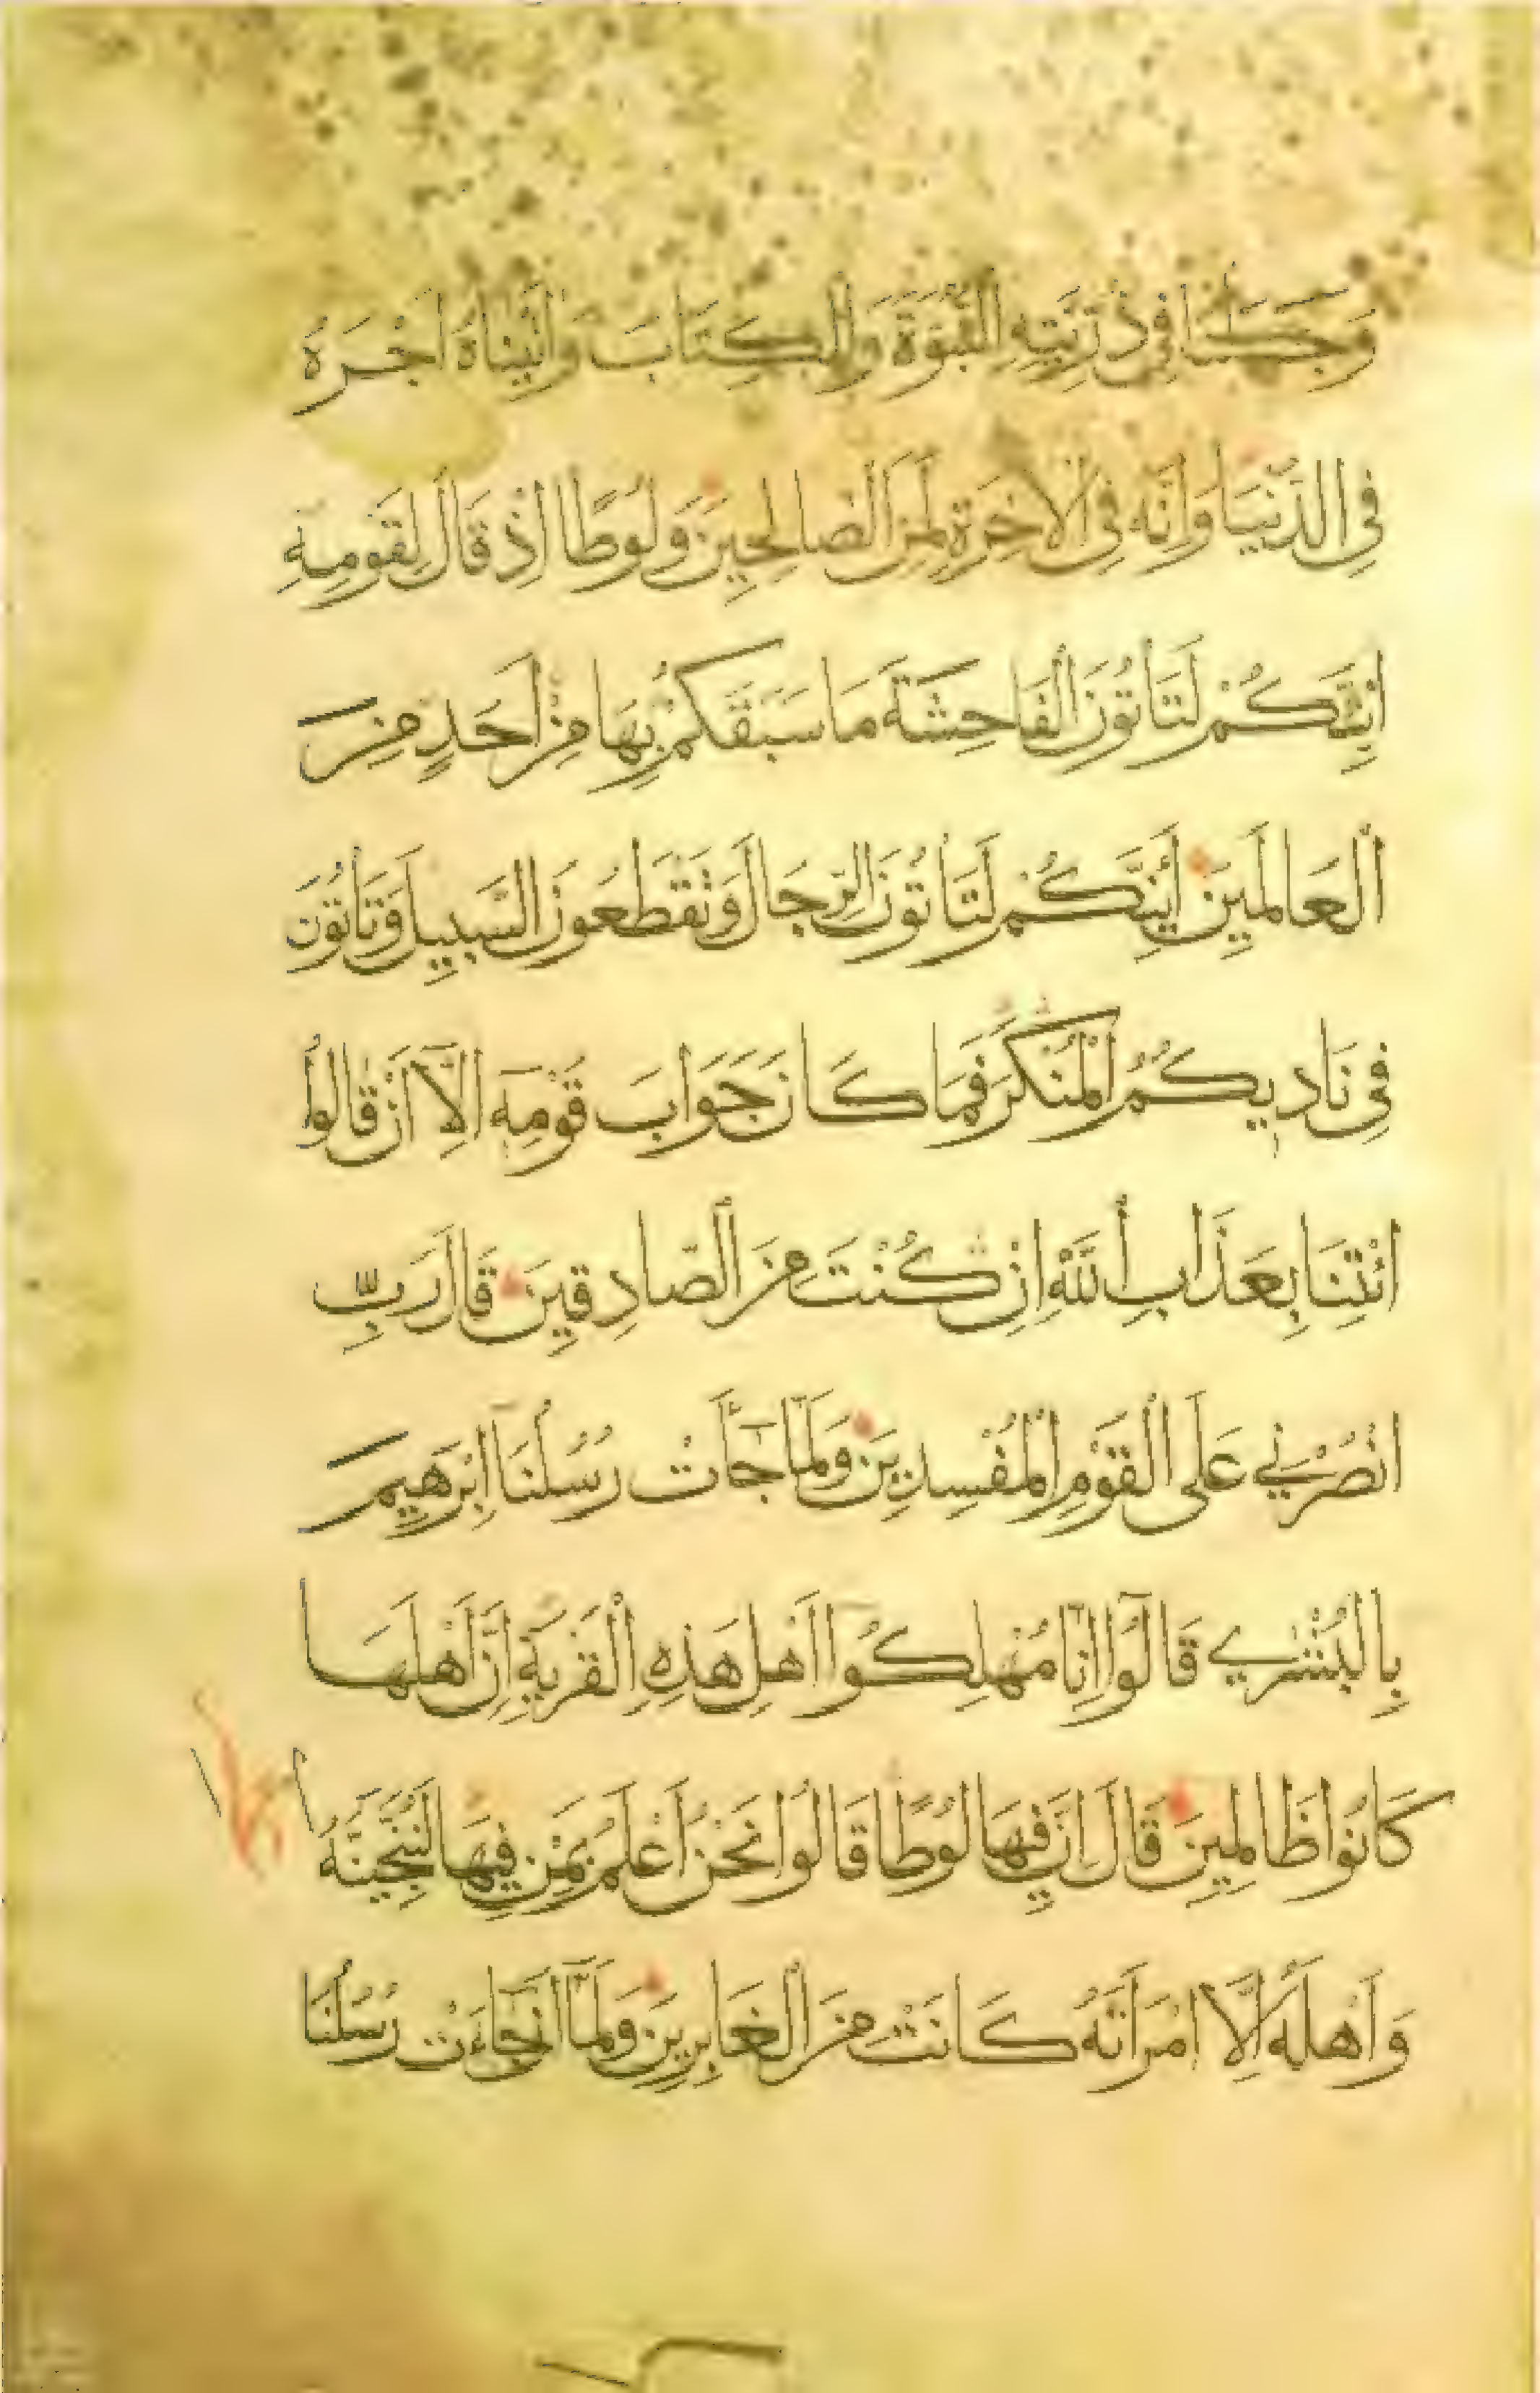 وَجَعَلْنَا فِي ذُرِّيَّتِهِ النُّبُوَّةَ وَالْكِتَابَ وَاٰتَيْنَاهُ اَجْرَهُ
فِي الدُّنْيَا وَاِنَّهُ فِي الْاٰخِرَةِ لَمِنَ الصَّالِحِينَ وَلُوطًا اِذْ قَالَ لِقَوْمِهِ
اَئِنَّكُمْ لَتَأْتُونَ الْفَاحِشَةَ مَا سَبَقَكُمْ بِهَا مِنْ اَحَدٍ مِنَ
الْعَالَمِينَ أَئِنَّكُمْ لَتَأْتُونَ الرِّجَالَ وَتَقْطَعُونَ السَّبِيلَ وَتَأْتُونَ
فِي نَادِيكُمُ الْمُنْكَرَ فَمَا كَانَ جَوَابَ قَوْمِهِ اِلَّا اَنْ قَالُوا
ائْتِنَا بِعَذَابِ اللَّهِ اِنْ كُنْتَ مِنَ الصَّادِقِينَ قَالَ رَبِّ
انْصُرْنِي عَلَى الْقَوْمِ الْمُفْسِدِينَ وَلَمَّا جَأَتْ رُسُلُنَا اِبْرَهِيمَ
بِالْبُشْرٰي قَالُوا اِنَّا مُهْلِكُوا اَهْلِ هَذِهِ الْقَرْيَةِ اِنَّ اَهْلَهَا
كَانُوا ظَالِمِينَ قَالَ اِنَّ فِيهَا لُوطًا قَالُوا نَحْنُ اَعْلَمُ بِمَنْ فِيهَا لَنُنَجِّيَنَّهُ
وَاَهْلَهُ اِلَّا امْرَاَتَهُ كَانَتْ مِنَ الْغَابِرِينَ وَلَمَّا اَنْ جَاءَتْ رُسُلُنَا